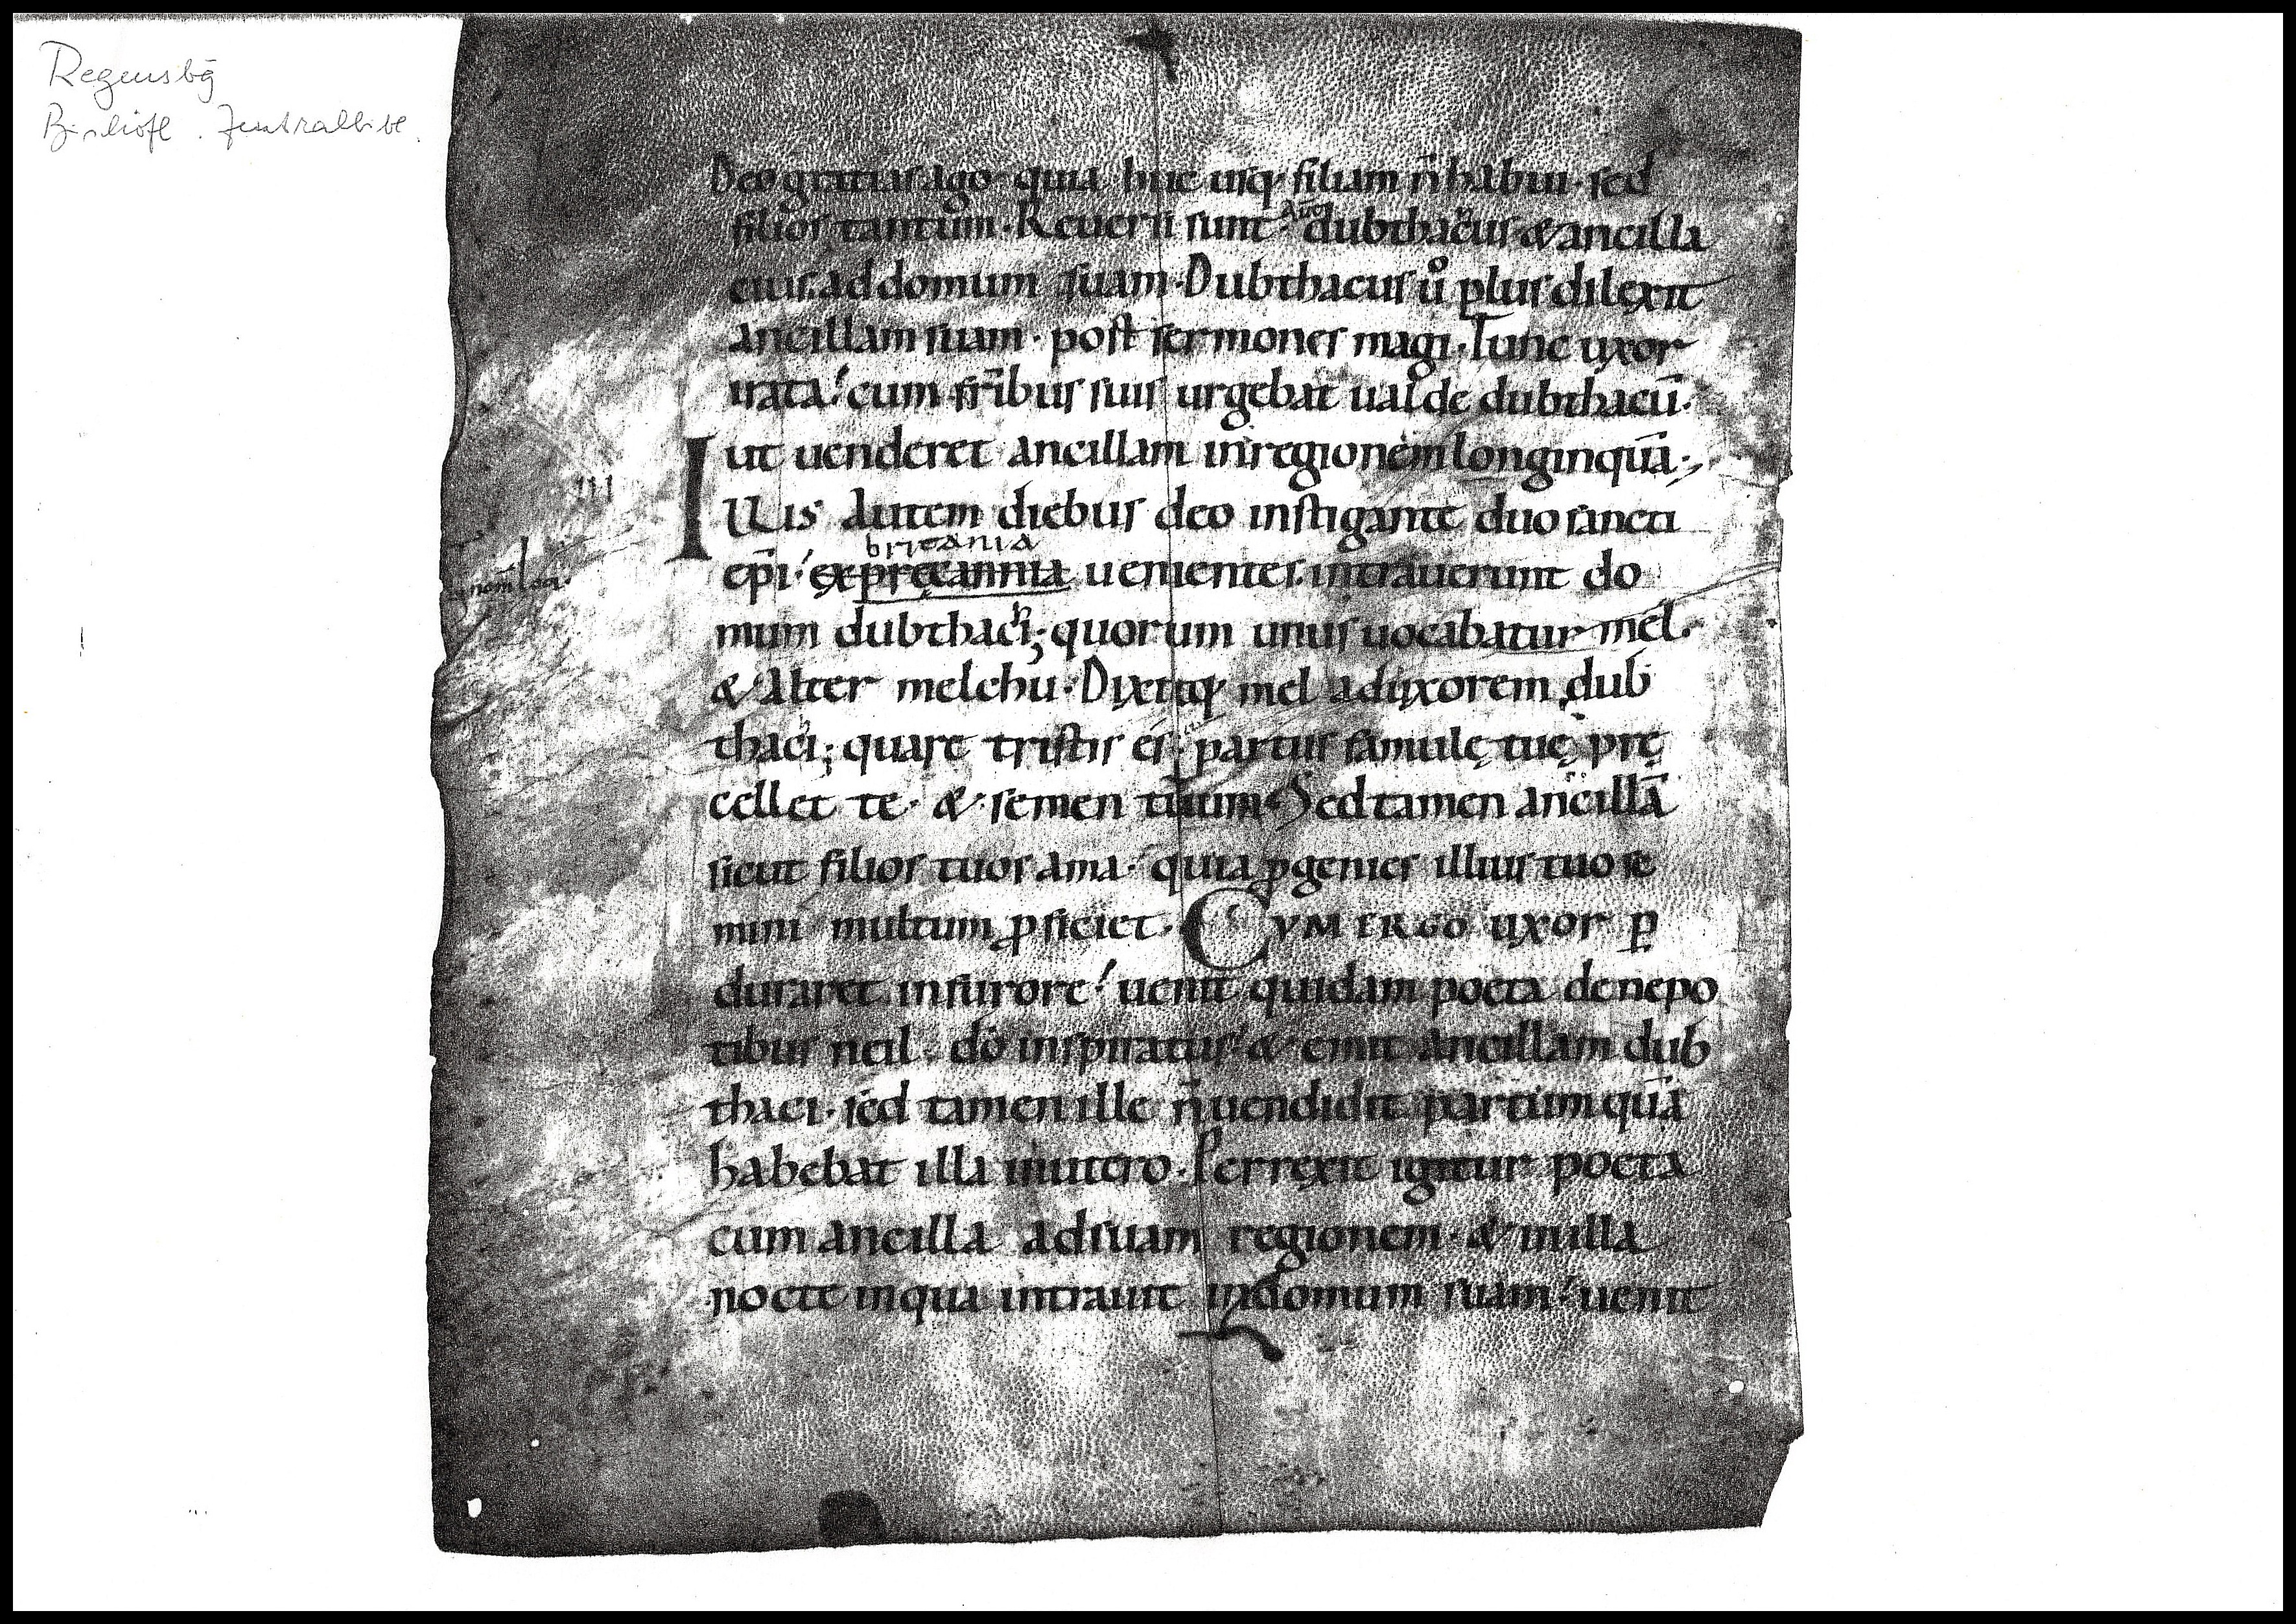 Regensbg
Bischöfl. Zentralbibl.
Deo gratias ago quia huc usq; filiam n̄ habui· sed
filios tantum· Reuersi sunt· aut̄ dubthachus & ancilla
eius· ad domum suam· Dubthacus ůo plus dilexit
ancillam suam· post sermones magi· Tunc uxor
irata! cum fr̄ibus suis urgebat ualde dubthacū·
ut uenderet ancillam in regionem longinquā·,
III
Illis autem diebus deo instigante duo sancti
britania
ep̄i· ex pręcannia uenientes· intrauerunt do
nom̄ loci·
mum dubthachi; quorum unus uocabatur mel·
& alter melchu· Dixitq; mel ad uxorem dub
thachi; quare tristis es· partus famulę tuę prę
cellet te· & semen tuum· Sed tamen ancillā
sicut filios tuos ama· quia ꝓgenies illius tuo se
mini multum ꝓficiet· CUM ERGO uxor ꝑ
duraret in furore! uenit quidam poeta de nepo
tibus neil· dō inspiratus & emit ancillam dub
thaci· sed tamen ille n̄ uendidit partum quā
habebat illa in utero· Perrexit igitur poeta
cum ancilla ad suam regionem· & in illa
nocte in qua intrauit in domum suam· uenit